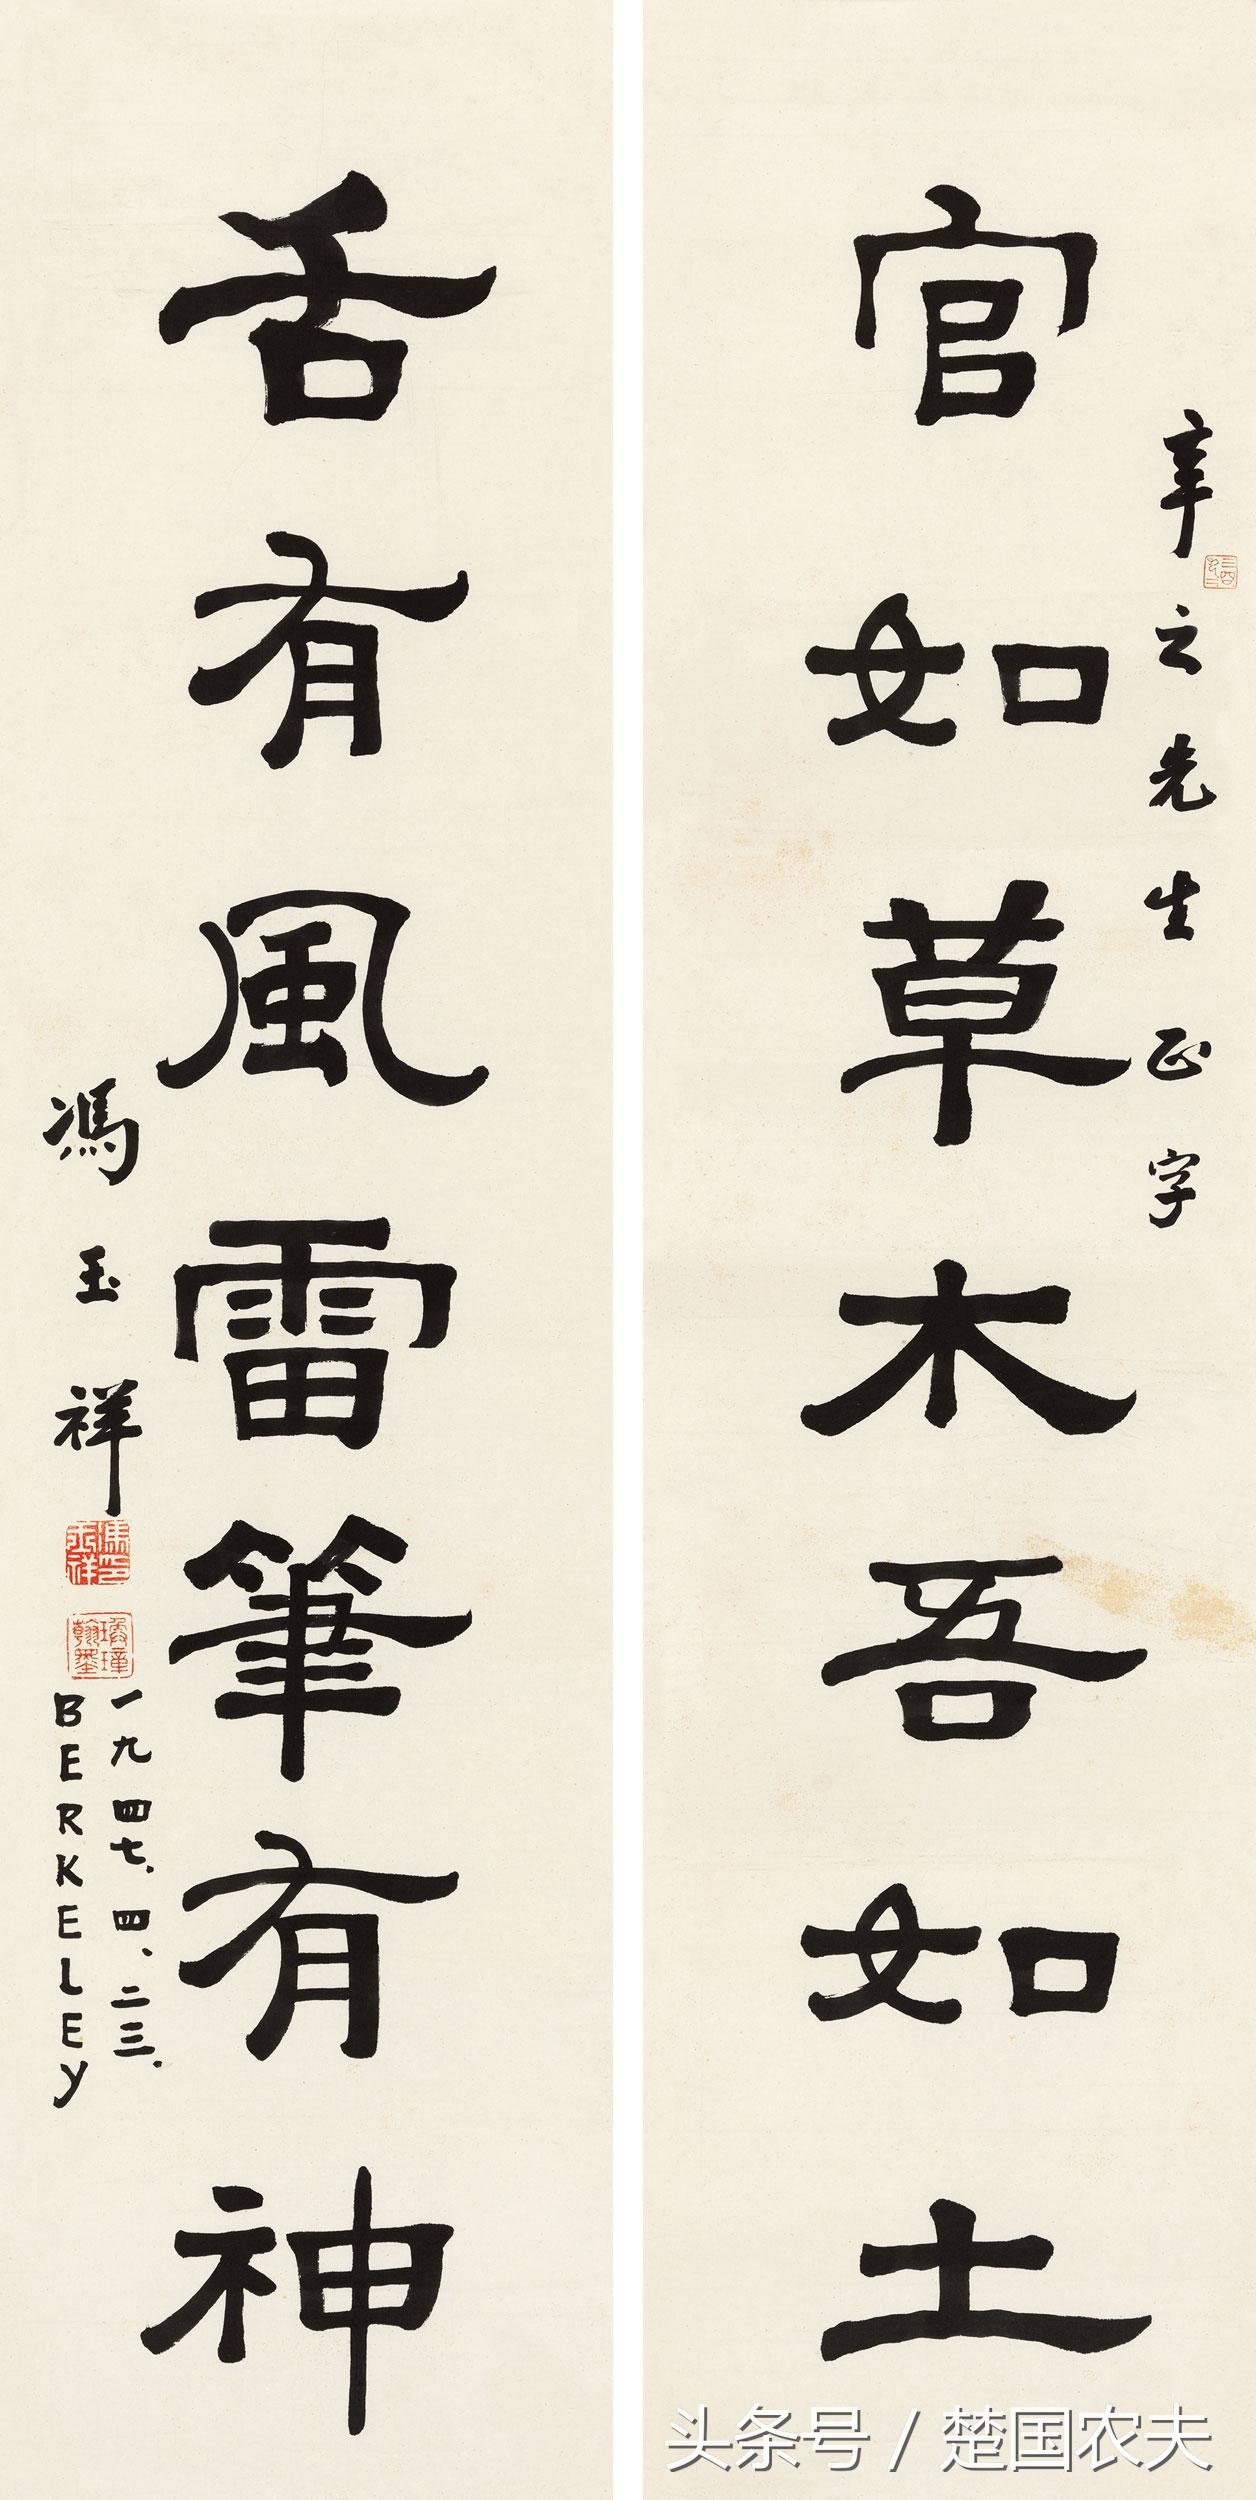 辛之先生正字
官如草木吾如土
舌有風雷筆有神
馮玉祥
一九四七.四、二三.
BERKELEY
头条号 / 楚国农夫